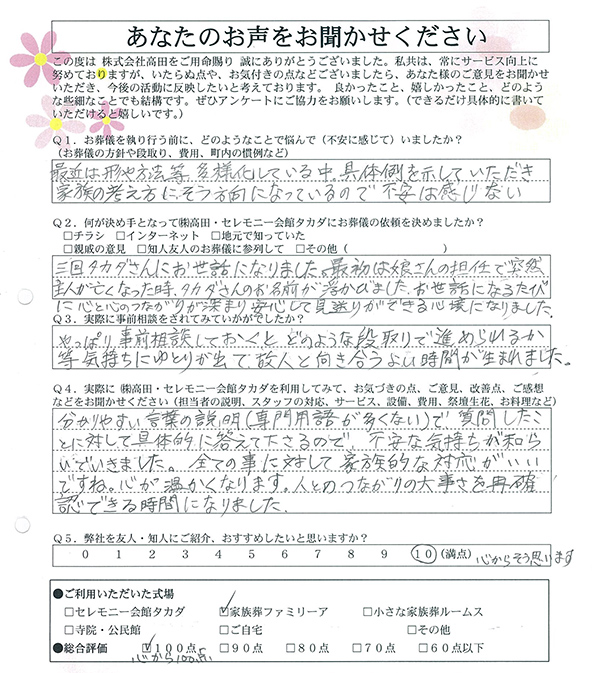 あなたのお声をお聞かせください
この度は 株式会社高田をご用命賜り 誠にありがとうございました。私共は、常にサービス向上に
努めておりますが、いたらぬ点や、お気付きの点などございましたら、あなた様のご意見をお聞かせ
いただき、今後の活動に反映したいと考えております。 良かったこと、嬉しかったこと、どのよう
な些細なことでも結構です。ぜひアンケートにご協力をお願いします。(できるだけ具体的に書いて
いただけると嬉しいです。)
Q1．お葬儀を執り行う前に、どのようなことで悩んで（不安に感じて）いましたか？
（お葬儀の方針や段取り、費用、町内の慣例など）
最近は形や方法等、多様化している中、具体例を示していただき
家族の考え方にそう方向になっているので不安は感じない
Q2．何が決め手となって㈱高田・セレモニー会館タカダにお葬儀の依頼を決めましたか？
□チラシ □インターネット □地元で知っていた
□親戚の意見 □知人友人のお葬儀に参列して □その他（ ）
三回タカダさんにお世話になりました。最初は娘さんの担任で突然
主人が亡くなった時、タカダさんのお名前が浮かびました。お世話になるたび
に心と心のつながりが深まり安心して見送りができる心境になりました。
Q3．実際に事前相談をされてみていかがでしたか？
やっぱり事前相談しておくと、どのような段取りで進められるか
等気持ちにゆとりが出て、故人と向き合うよい時間が生まれました。
Q4．実際に ㈱高田・セレモニー会館タカダを利用してみて、お気づきの点、ご意見、改善点、ご感想
などをお聞かせください（担当者の説明、スタッフの対応、サービス、設備、費用、祭壇生花、お料理など）
分かりやすい言葉の説明(専門用語が多くない)で、質問したこ
とに対して具体的に答えて下さるので、不安な気持ちが和ら
いでいきました。全ての事に対して家族的な対応がいい
ですね。心が温かくなります。人とのつながりの大事さを再確
認できる時間になりました。
Q5．弊社を友人・知人にご紹介、おすすめしたいと思いますか？
0 1 2 3 4 5 6 7 8 9 10 (満点) 心からそう思います
●ご利用いただいた式場
□セレモニー会館タカダ ☑家族葬ファミリーア □小さな家族葬ルームス
□寺院・公民館 □ご自宅 □その他
●総合評価 ☑100点 □90点 □80点 □70点 □60点以下
心から100点